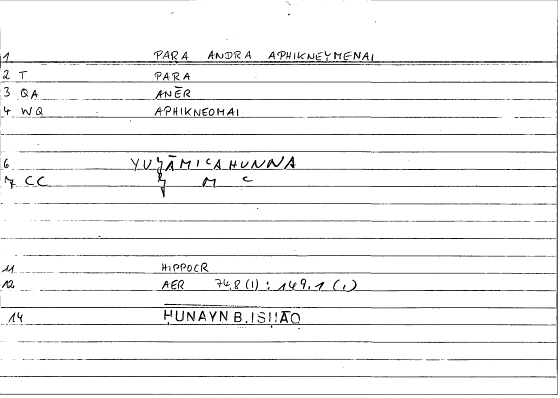 1 PARA ANDRA APHIKNEYMENAI
2 T PARA
3 QA ANĒR
4 WQ APHIKNEOMAI
6 YUǦĀMICAHUNNA
7 CC Ǧ M C
11 HIPPOCR
12 AER 74,8 (1) : 149,1 (,)
14 ḤUNAYN B. ISḤĀQ